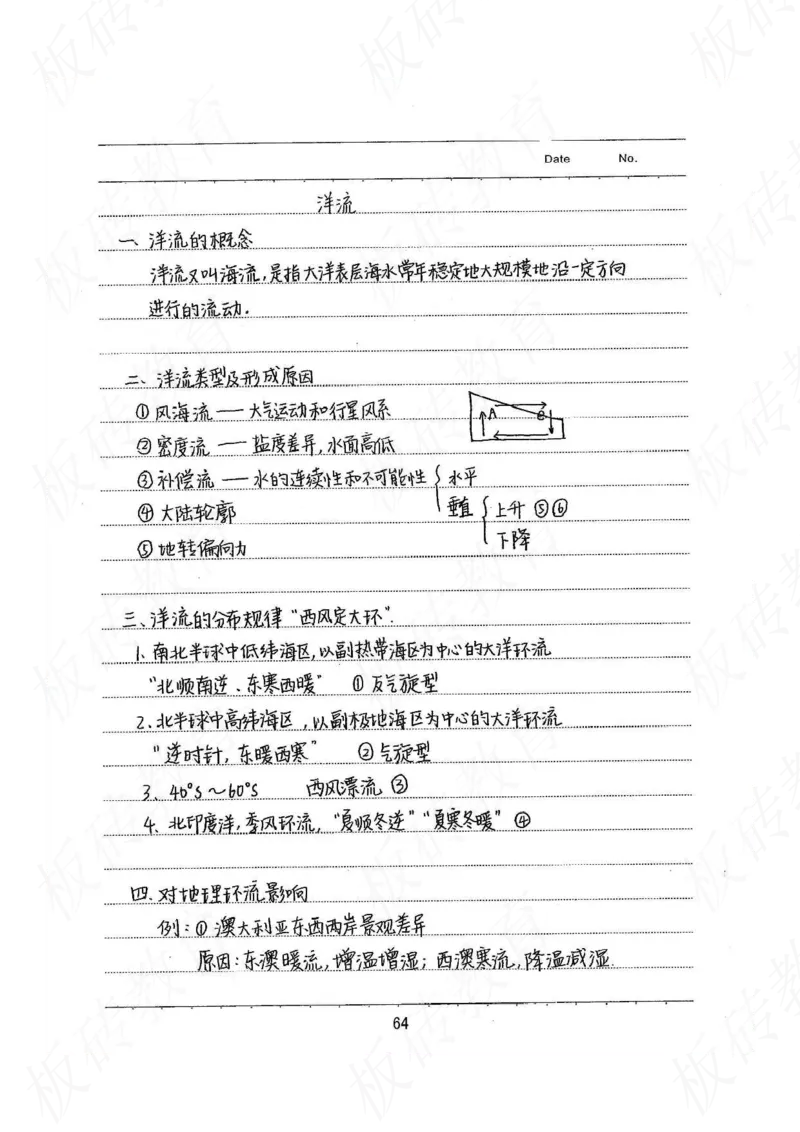 Date No.
洋流
一、洋流的概念
洋流又叫海流,是指大洋表层海水常年稳定地大规模地沿一定方向
进行的流动.
二、洋流类型及形成原因
①风海流——大气运动和行星风系
②密度流——盐度差异,水面高低
A B
③补偿流——水的连续性和不可能性{水平
④大陆轮廓 垂直{上升⑤⑥
⑤地转偏向力 下降
三、洋流的分布规律"西风定大环".
1.南北半球中低纬海区,以副热带海区为中心的大洋环流
"北顺南逆、东寒西暖" ①反气旋型
2.北半球中高纬海区,以副极地海区为中心的大洋环流
"逆时针,东暖西寒" ②气旋型
3、40°S~60°S 西风漂流③
4、北印度洋,季风环流,"夏顺冬逆""夏寒冬暖"④
四、对地理环流影响
例:①澳大利亚东西两岸景观差异
原因:东澳暖流,增温增湿;西澳寒流,降温减湿.
64
板砖教育